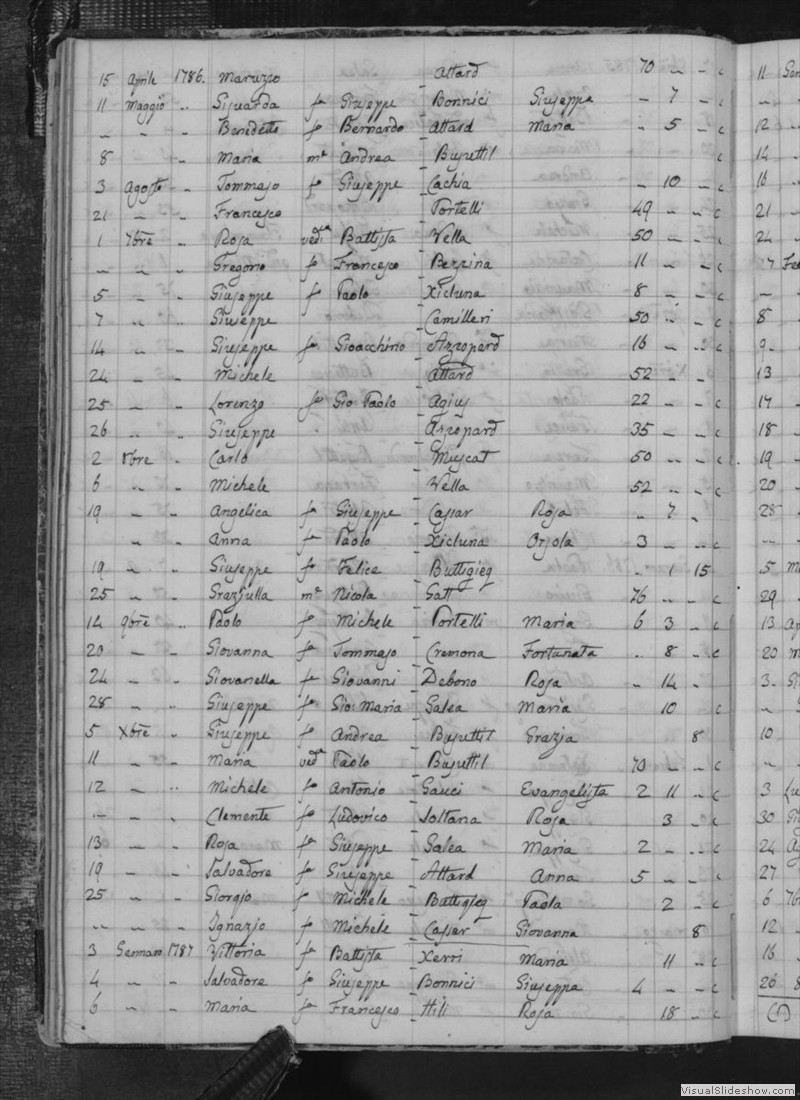 15 Aprile 1786. Maruzzo Attard 70 - - c
11 Maggio .. Sijuarda fa Giuseppe Bonnici Giuseppa - 7 - c
- - - Benedetto fo Bernardo Attard Maria - 5 - c
8 - Maria me Andrea Busuttil c
3 Agosto - Tommaso fo Giuseppe Cachia - 10 - c
21 - - Francesco Portelli 49 - - c
1 7bre - Rosa veda Battista Vella 50 - - c
- - - Gregorio fo Francesco Bezzina 11 - - c
5 - - Giuseppe fo Paolo Xicluna 8 - - c
7 .. .. Giuseppe Camilleri 50 .. - c
14 - .. Giuseppe fo Gioacchino Azzopard 16 - - c
24 - - Michele Attard 52 - - c
25 - - Lorenzo fo Gio Paolo Agius 22 - - c
26 .. .. Giuseppe Azzopard 35 - - c
2 8bre . Carlo Muscat 50 .. - c
6 .. - Michele Vella 52 .. - c
19 - - Angelica fa Giuseppe Cassar Rosa .. 7 -
.. - Anna fa Paolo Xicluna Orsola 3 - .. c
19 - - Giuseppe fo Felice Buttigieg .. 1 15
25 - - Grazjulla me Nicola Gatt 76 .. - c
14 9bre .. Paolo fo Michele Portelli Maria 6 3 - c
20 - - Giovanna fa Tommaso Cremona Fortunata . 8 - c
24 - - Giovanella fa Giovanni Debono Rosa - 14 -
28 - .. Giuseppe fo Gio: Maria Galea Maria 10 c
5 Xbre .. Giuseppe fo Andrea Busuttil Grazja 8
11 - - Maria veda Paolo Busuttil 70 - - c
12 - .. Michele fo Antonio Gauci Evangelista 2 11 - c
- - .. Clemente fo Ludovico Soltana Rosa 3 - c
13 - .. Rosa fa Giuseppe Galea Maria 2 - .. c
19 - - Salvadore fo Giuseppe Attard Anna 5 - - c
25 - - Giorgio fo Michele Buttigieg Paola 2 - c
.. - .. Ignazio fo Michele Cassar Giovanna 8
3 Gennaro 1787 Vittoria fa Battista Xerri Maria 11 - c
4 - - Salvadore fo Giuseppe Bonnici Giuseppa 4 - - c
6 - - Maria fa Francesco Hili Rosa 18 - c
11
12
14
16
21
24
27
8
9
13
17
18
19
20
28
5
29
13
20
3
10
3
30
24
27
6
12
16
26
VisualSlideshow.com